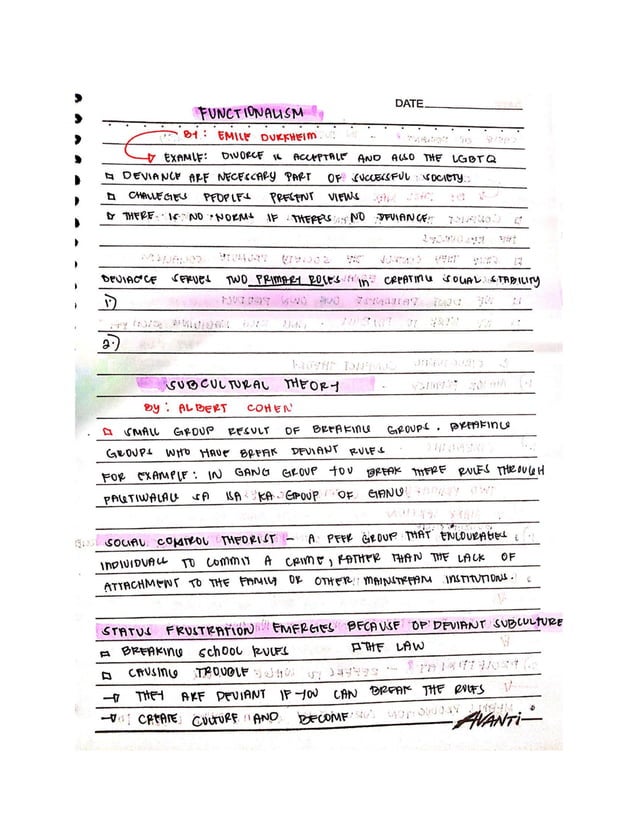 DATE
FUNCTIONALISM
BY: EMILE DURKHEIM
EXAMLE: DIVORCE IS ACCEPTALE AND ALSO THE LGBTQ
DEVIANCE ARE NECESSARY PART OF SUCCESSFUL SOCIETY
CHALLEGIES PEOPLES PRESENT VIEWS
THERE IS NO NORMS IF THERES NO DEVIANCE
DEVIACCE SERVES TWO PRIMARY ROLES IN CREATING SOCIAL STABILITY
1.)
2.)
SUBCULTURAL THEORY
BY: ALBERT COHEN
SMALL GROUP RESULT OF BREAKING GROUPS. BREAKING
GROUPS WHO HAVE BREAK DEVIANT RULES
FOR EXAMPLE: IN GANG GROUP YOU BREAK THERE RULES THROUGH
PAGTIWALAG SA ISA KA GROUP OF GANG
SOCIAL CONTROL THEORIST - A PEER GROUP THAT ENCOURAGES
INDIVIDUALL TO COMMIT A CRIME, RATHER THAN THE LACK OF
ATTACHMENT TO THE FAMILY OR OTHER MAINSTREAM INSTITUTIONS.
STATUS FRUSTRATION EMERGIES BECAUSE OF DEVIANT SUBCULTURE
BREAKING SCHOOL RULES THE LAW
CAUSING TROUBLE
THEY ARE DEVIANT IF YOU CAN BREAK THE RULES
CREATE CULTURE AND BECOME
AVANTi